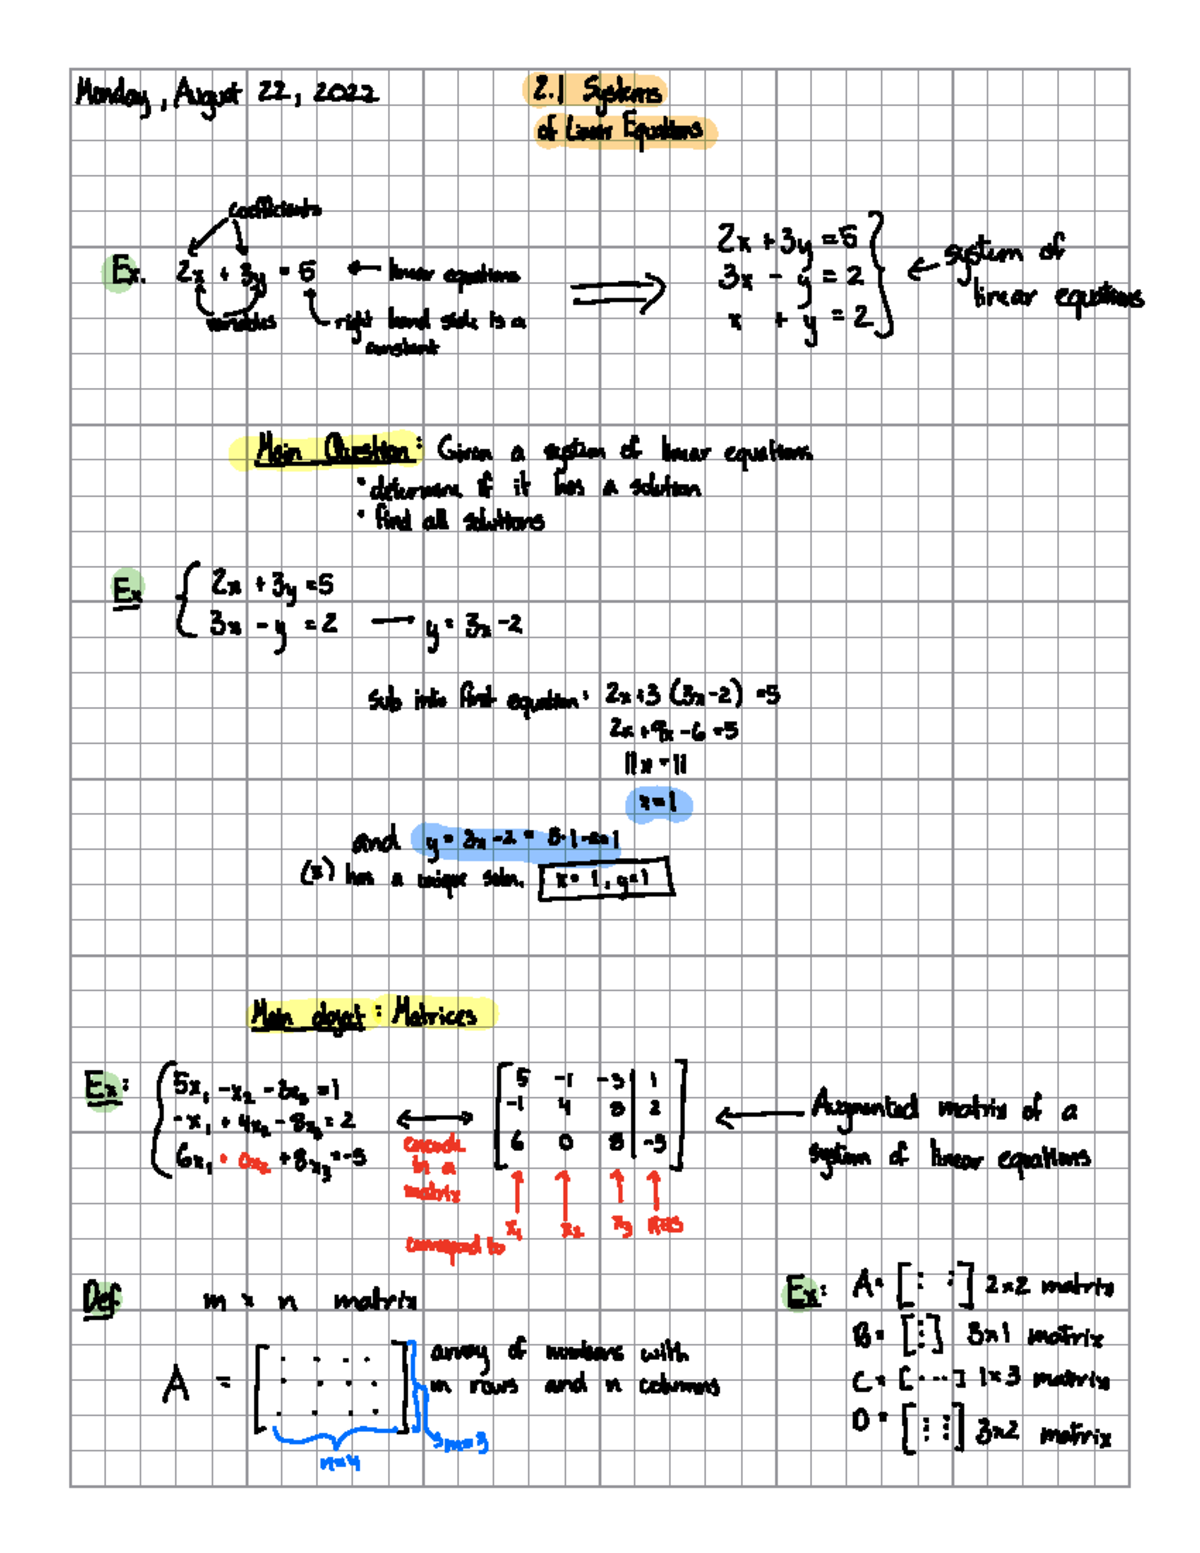 Monday, August 22, 2022
2.1 Systems
of Linear Equations
coefficients
Ex. 2x + 3y = 5 ← linear equations
variables
right hand side is a
constant
⟹
2x + 3y = 5
3x - y = 2
x + y = 2
← system of
linear equations
Main Question: Given a system of linear equations
• determine if it has a solution
• find all solutions
Ex { 2x + 3y = 5
3x - y = 2 → y = 3x - 2
sub into first equation: 2x + 3 (3x - 2) = 5
2x + 9x - 6 = 5
11x = 11
x = 1
and y = 3x - 2 = 3·1 - 2 = 1
(*) has a unique soln. x = 1, y = 1
Main object: Matrices
Ex: { 5x₁ - x₂ - 3x₃ = 1
-x₁ + 4x₂ - 8x₃ = 2
6x₁ + 0x₂ + 8x₃ = -5
↔
encode
in a
matrix
5 -1 -3 | 1
-1 4 8 | 2
6 0 8 | -5
← Augmented matrix of a
system of linear equations
x₁ x₂ x₃ RHS
correspond to
Def m × n matrix
A =
array of numbers with
m rows and n columns
m=3
n=4
Ex: A = [ : : ] 2×2 matrix
B = [⋮] 3×1 matrix
C = [···] 1×3 matrix
D = [⋮ ⋮] 3×2 matrix